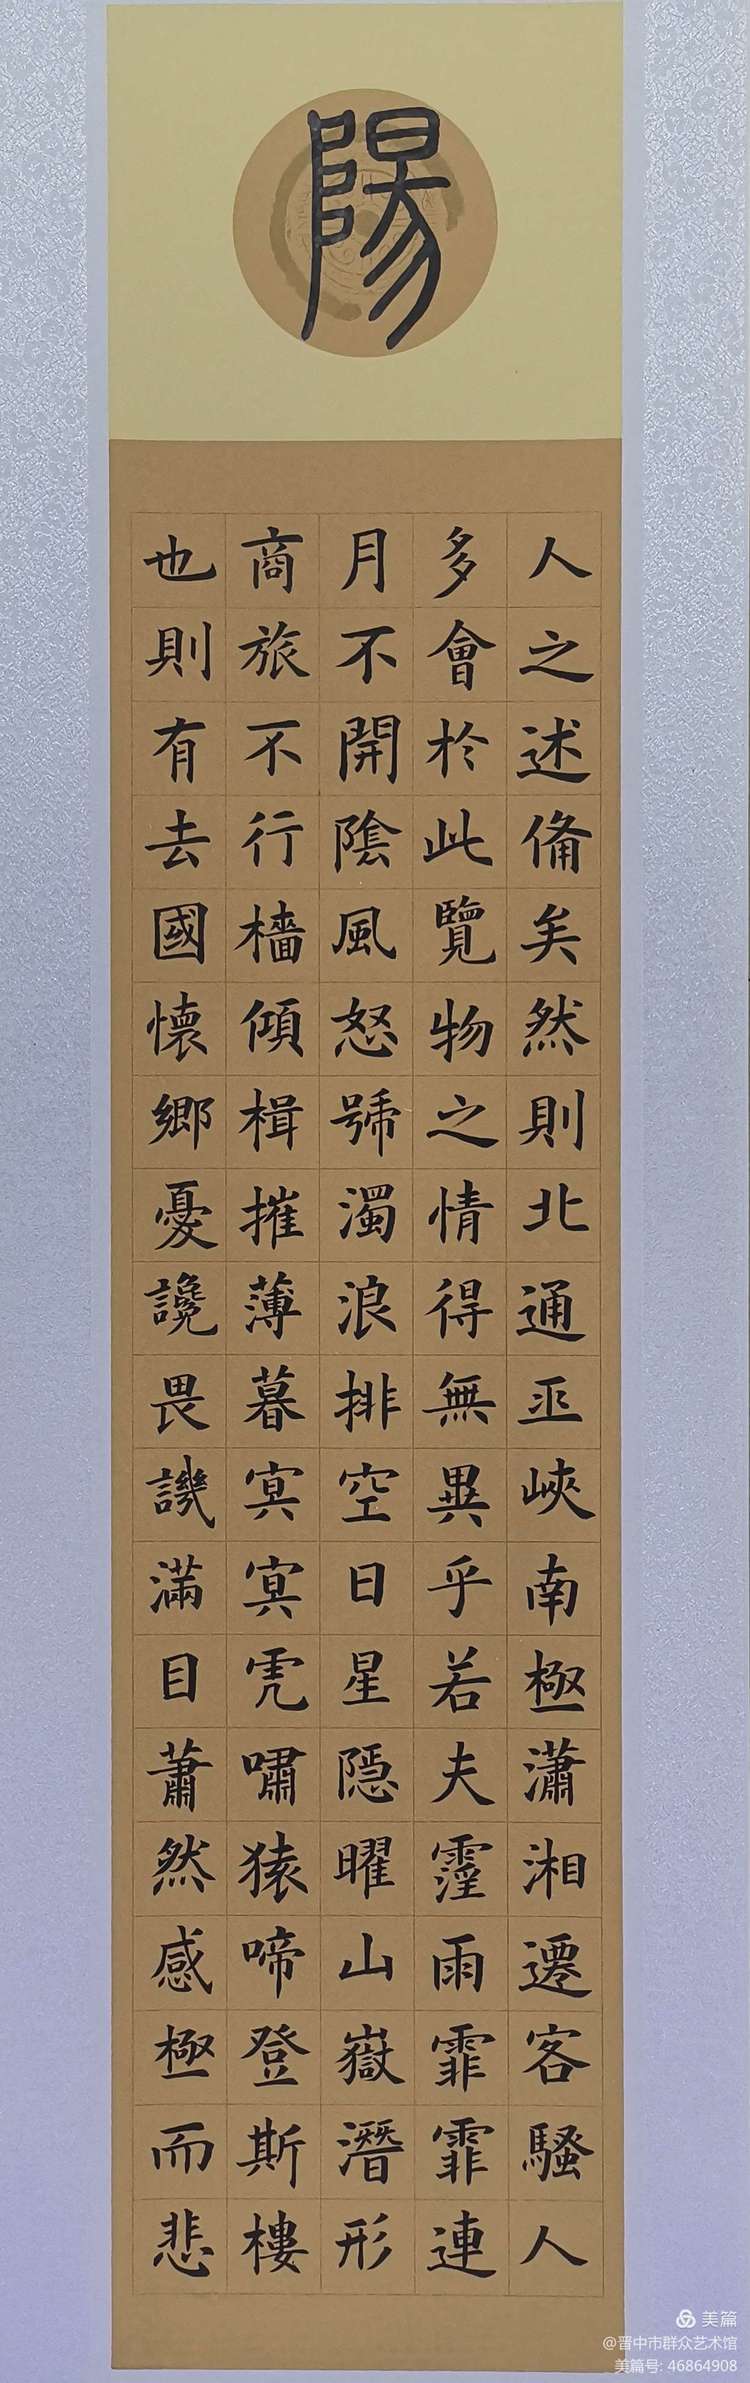 陽
人之述俻矣然則北通巫峽南極瀟湘遷客騷人
多會於此覽物之情得無異乎若夫霪雨霏霏連
月不開陰風怒號濁浪排空日星隱曜山嶽潛形
商旅不行檣傾楫摧薄暮冥冥虎嘯猿啼登斯樓
也則有去國懷鄉憂讒畏譏滿目蕭然感極而悲
美篇
@晋中市群众艺术馆
美篇号: 46864908